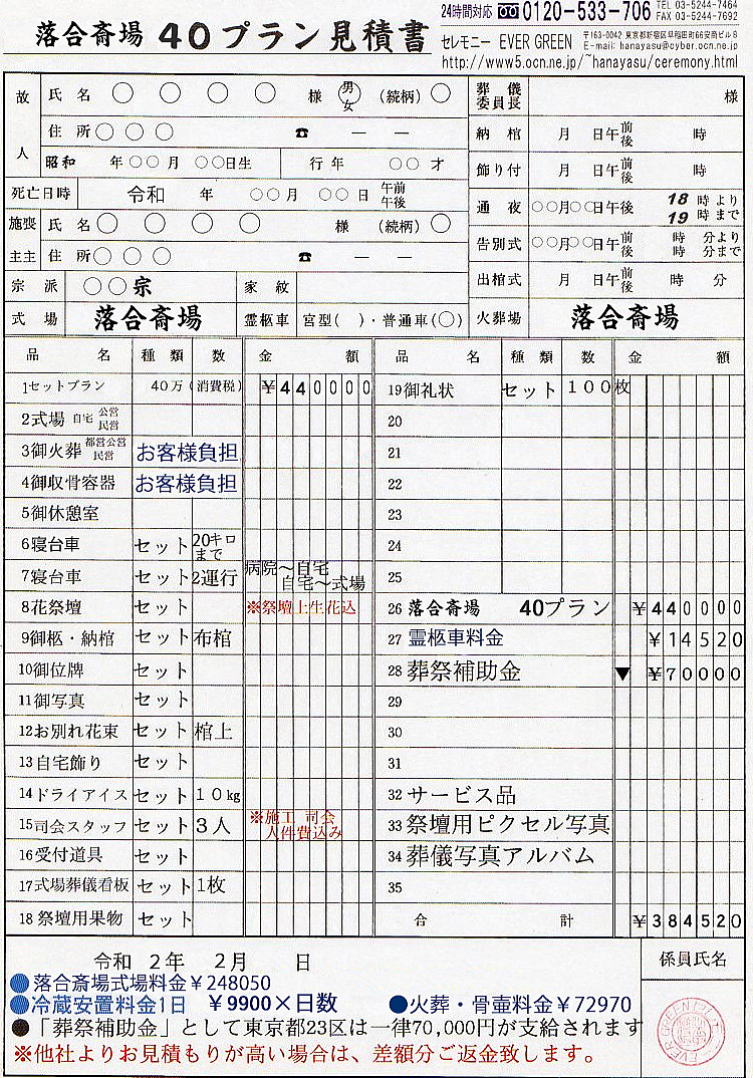 落合斎場 40プラン見積書
24時間対応 0120-533-706 TEL 03-5244-7464
FAX 03-5244-7692
セレモニー EVER GREEN 〒163-0042 東京都新宿区早稲田町66安商ビル8
E-mail: hanayasu@cyber.ocn.ne.jp
http://www5.ocn.ne.jp/~hanayasu/ceremony.html
故人 氏名 ○ ○ ○ ○ 様 男女 (続柄) ○
住所 ○ ○ ○ ☎ ― ―
昭和 年○○月 ○○日生 行年 ○○ 才
死亡日時 令和 年 ○○月 ○○日 午前午後
施主 喪主 氏名 ○ ○ ○ ○ 様 (続柄) ○
住所 ○ ○ ○ ☎ ― ―
宗派 ○○宗 家紋
式場 落合斎場 霊柩車 宮型( )・普通車(○)
葬儀委員長 様
納棺 月 日午前後 時
飾り付 月 日午前後 時
通夜 ○○月○○日午後 18時より
19時まで
告別式 ○○月○○日午前後 時 分より
時 分まで
出棺式 月 日午前後 時 分
火葬場 落合斎場
品名 種類 数 金額
1セットプラン 40万(消費税) ¥440000
2式場 自宅 公営 民営
3御火葬 都営公営 民営 お客様負担
4御収骨容器 お客様負担
5御休憩室
6寝台車 セット 20キロまで
7寝台車 セット 2運行 病院〜自宅
自宅〜式場
8花祭壇 セット ※祭壇上生花込
9御柩・納棺 セット 布棺
10御位牌 セット
11御写真 セット
12お別れ花束 セット 棺上
13自宅飾り セット
14ドライアイス セット 10kg
15司会スタッフ セット 3人 ※施工 司会
人件費込み
16受付道具 セット
17式場葬儀看板 セット 1枚
18祭壇用果物 セット
品名 種類 数 金額
19御礼状 セット 100枚
20
21
22
23
24
25
26 落合斎場 40プラン ¥440000
27 霊柩車料金 ¥14520
28 葬祭補助金 ▼ ¥70000
29
30
31
32 サービス品
33 祭壇用ピクセル写真
34 葬儀写真アルバム
35
合計 ¥384520
令和 2年 2月 日
係員氏名
●落合斎場式場料金¥248050
●冷蔵安置料金1日 ¥9900×日数 ●火葬・骨壷料金¥72970
●「葬祭補助金」として東京都23区は一律70,000円が支給されます
※他社よりお見積もりが高い場合は、差額分ご返金致します。